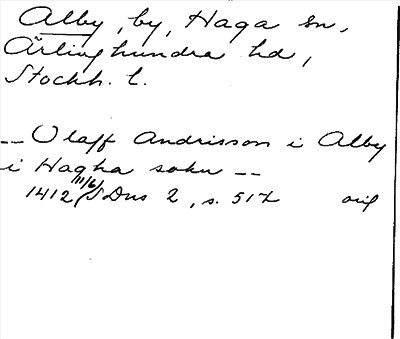 Alby, by, Haga sn,
Ärlinghundra hd,
Stockh. l.
-- Olaff Andrisson i Alby
i Hagha sokn --
1412 11/6 SDns 2, s. 517 orig